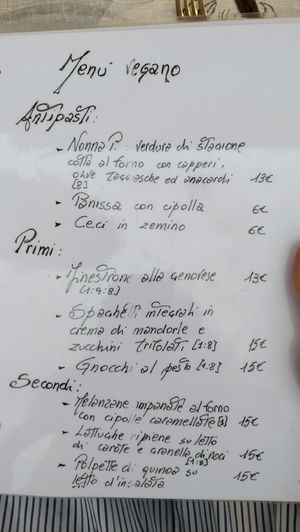 Menù vegano
Antipasti:
- Nonna P. : verdura di stagione
cotta al forno con capperi,
olive taggiasche ed anacardi 13€
[8]
- Panissa con cipolla 6€
- Ceci in zemino 6€
Primi:
- Minestrone alla genovese 13€
[1:9:8]
- Spaghetti integrali in
crema di mandorle e
zucchini tritolati [1:8] 15€
- Gnocchi al pesto [1:8] 15€
Secondi:
- Melanzane impanate al forno
con cipolle caramellate [1] 15€
- Lattughe ripiene su letto
di carote e granella di noci 15€
[1:8]
- Polpette di quinoa su
letto d'insalata 15€